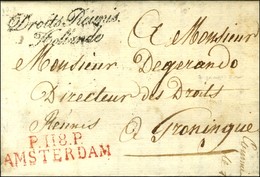 Droits Réunis
Hollande
A Monsieur
Monsieur Degerando
Directeur des Droits
Réunis
à Groningue
P.118.P.
AMSTERDAM